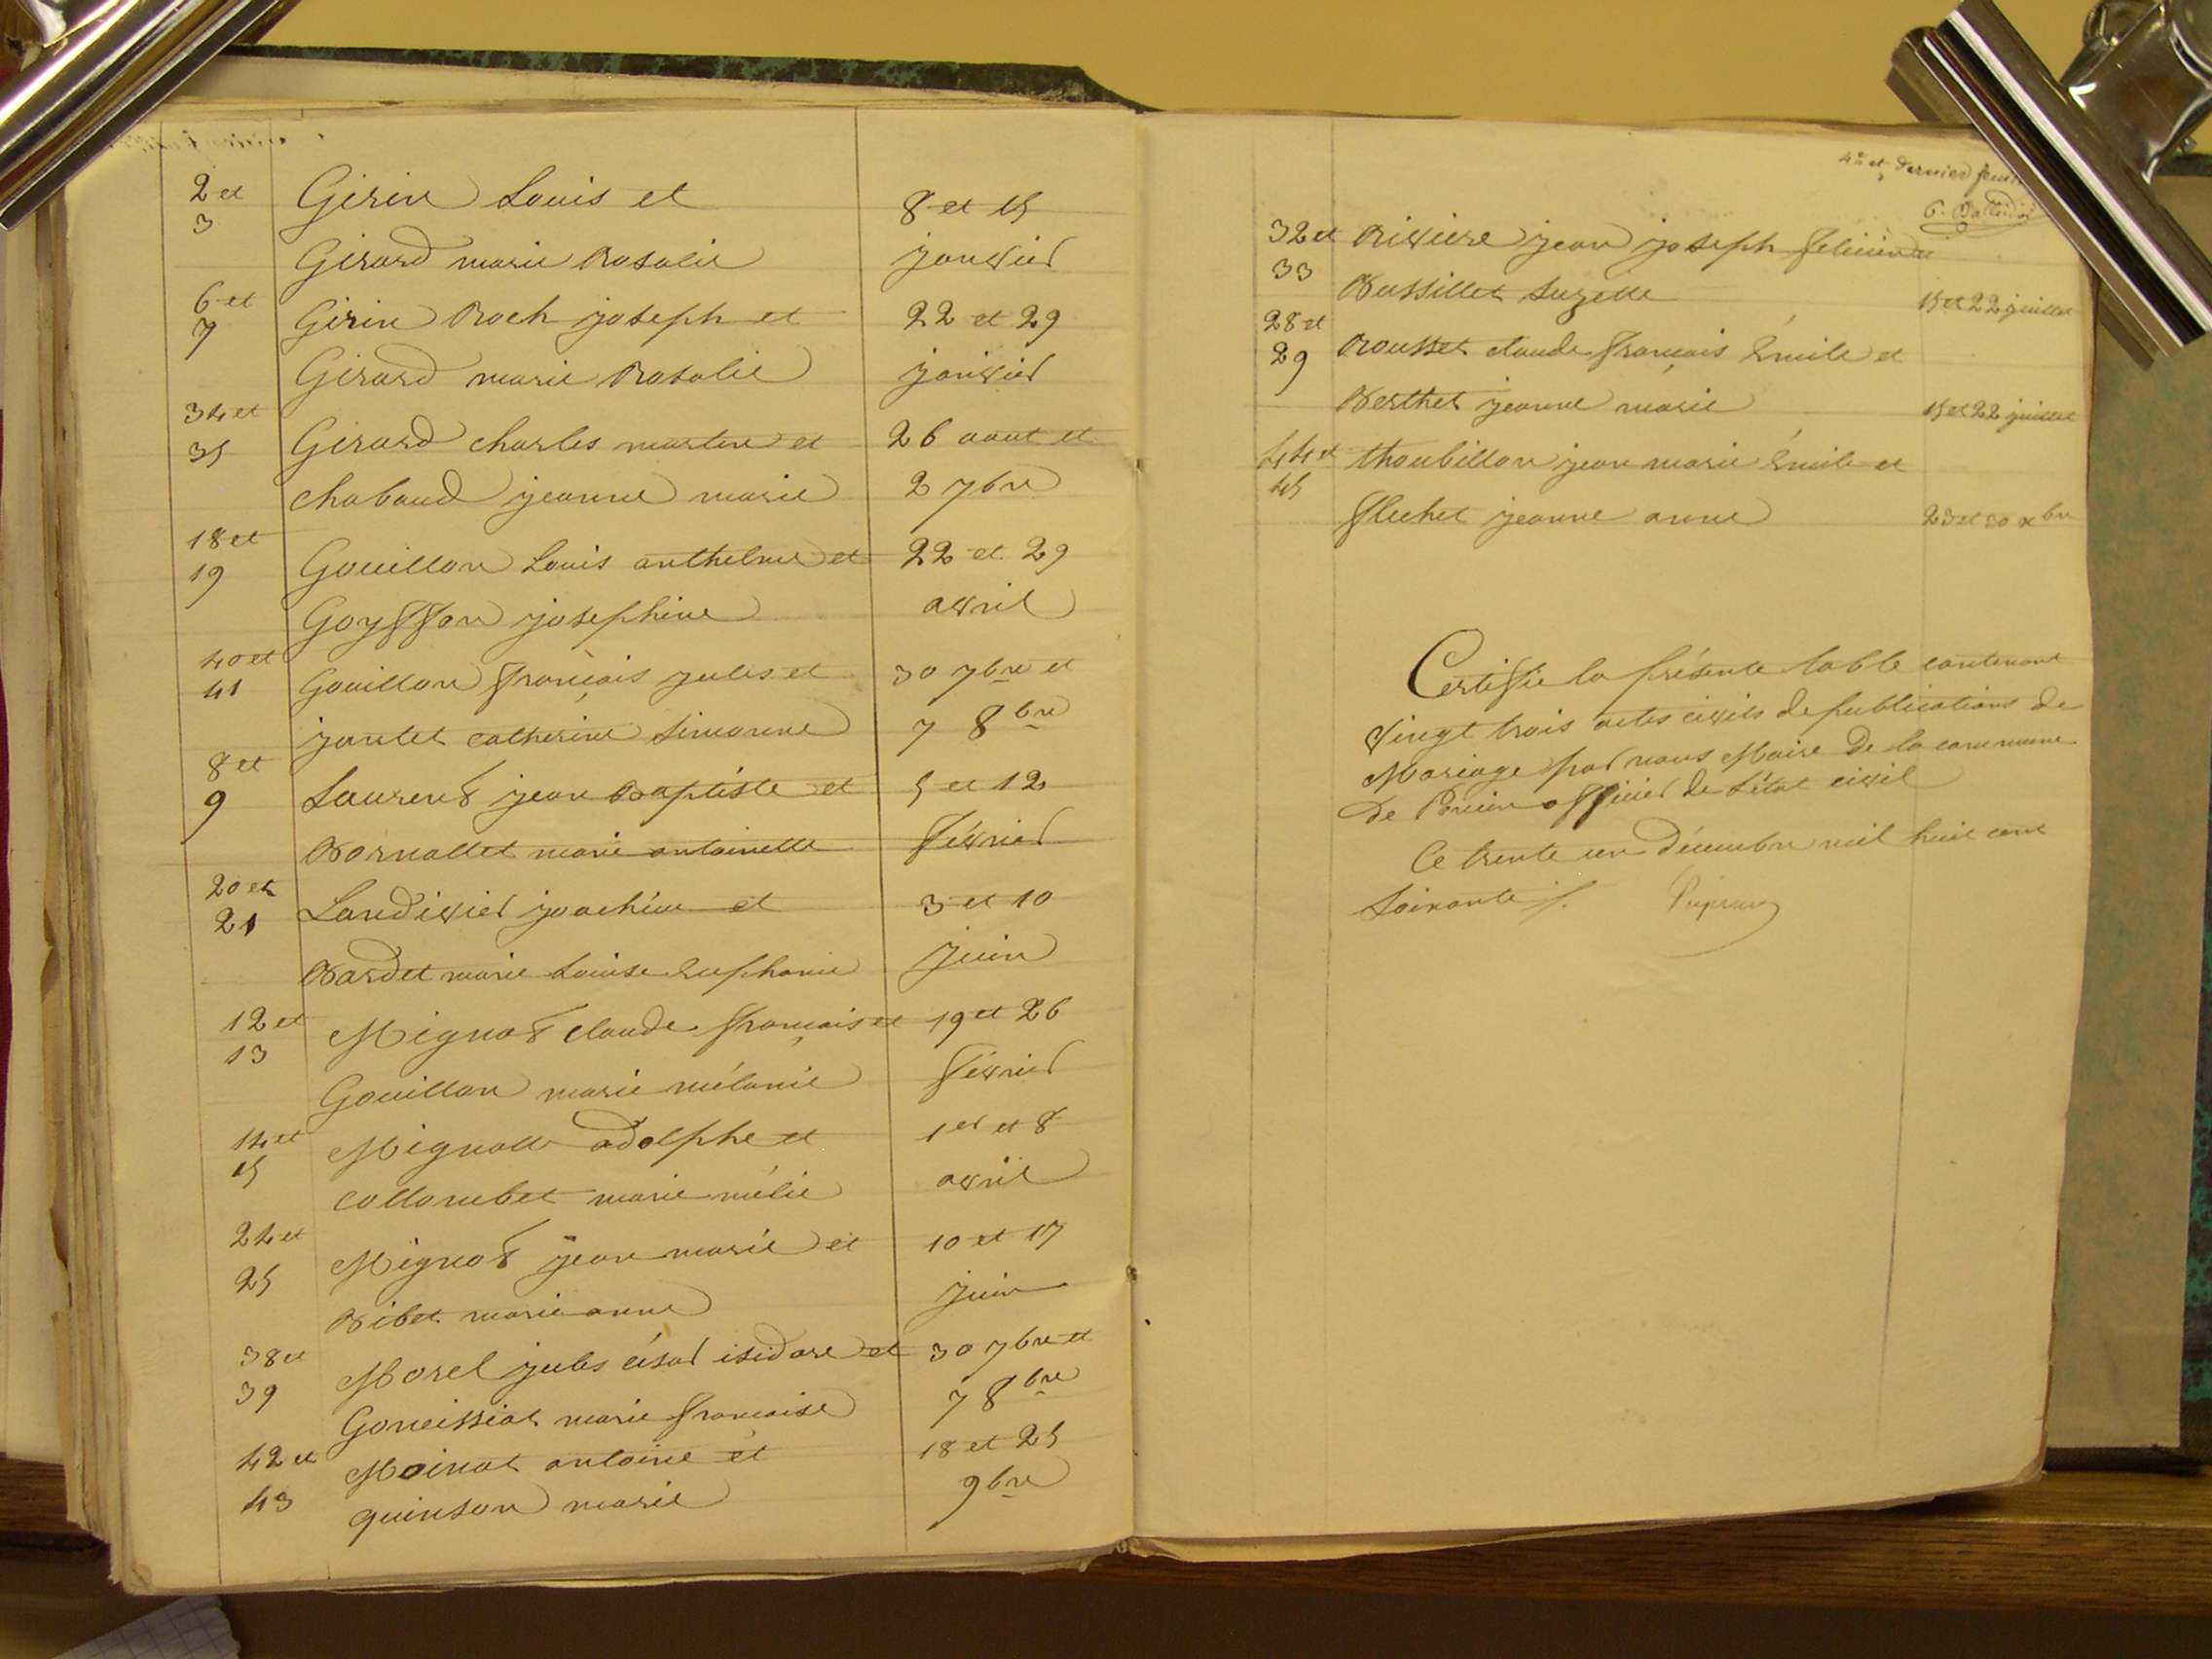 2 et Girin Louis et 8 et 15
3 Girard marie Rosalie janvier
6 et Girin Roch joseph et 22 et 29
7 Girard marie Rosalie janvier
34 et Girard charles martin et 26 aout et
35 chabaud jeanne marie 2 7bre
18 et Gouillon Louis anthelme et 22 et 29
19 Goyffon josephine avril
40 et Gouillon françois jules et 30 7bre et
41 jantet catherine simonne 7 8bre
8 et Laurent jean Baptiste et 5 et 12
9 Bornallet marie antoinette février
20 et Landivier joachim et 3 et 10
21 Bardet marie Louise Euphanie juin
12 et Mignot claude françois et 19 et 26
13 Gouillon marie mélanie février
14 et Mignot adolphe et 1er et 8
15 collombet marie mélie avril
24 et Mignot jean marie et 10 et 17
25 Bibet marie anne juin
38 et Morel jules césar isidore et 30 7bre et
39 Goneissiat marie françoise 7 8bre
42 et Moinat antoine et 18 et 25
43 quinson marie 9bre
4e et dernier
32 et Riviere jean joseph felicien et
33 Bussillet suzette 15 et 22 juillet
28 et Rousset claude françois Émile et
29 Berthet jeanne marie 15 et 22 juillet
44 et thoubillon jean marie Émile et
45 fluchet jeanne anne 23 et 30 xbre
Certifié la présente table contenant
vingt trois actes civils de publications de
Mariage par nous Maire de la commune
de Poncin officier de l'état civil
Ce trente un décembre mil huit cent
soixante /.